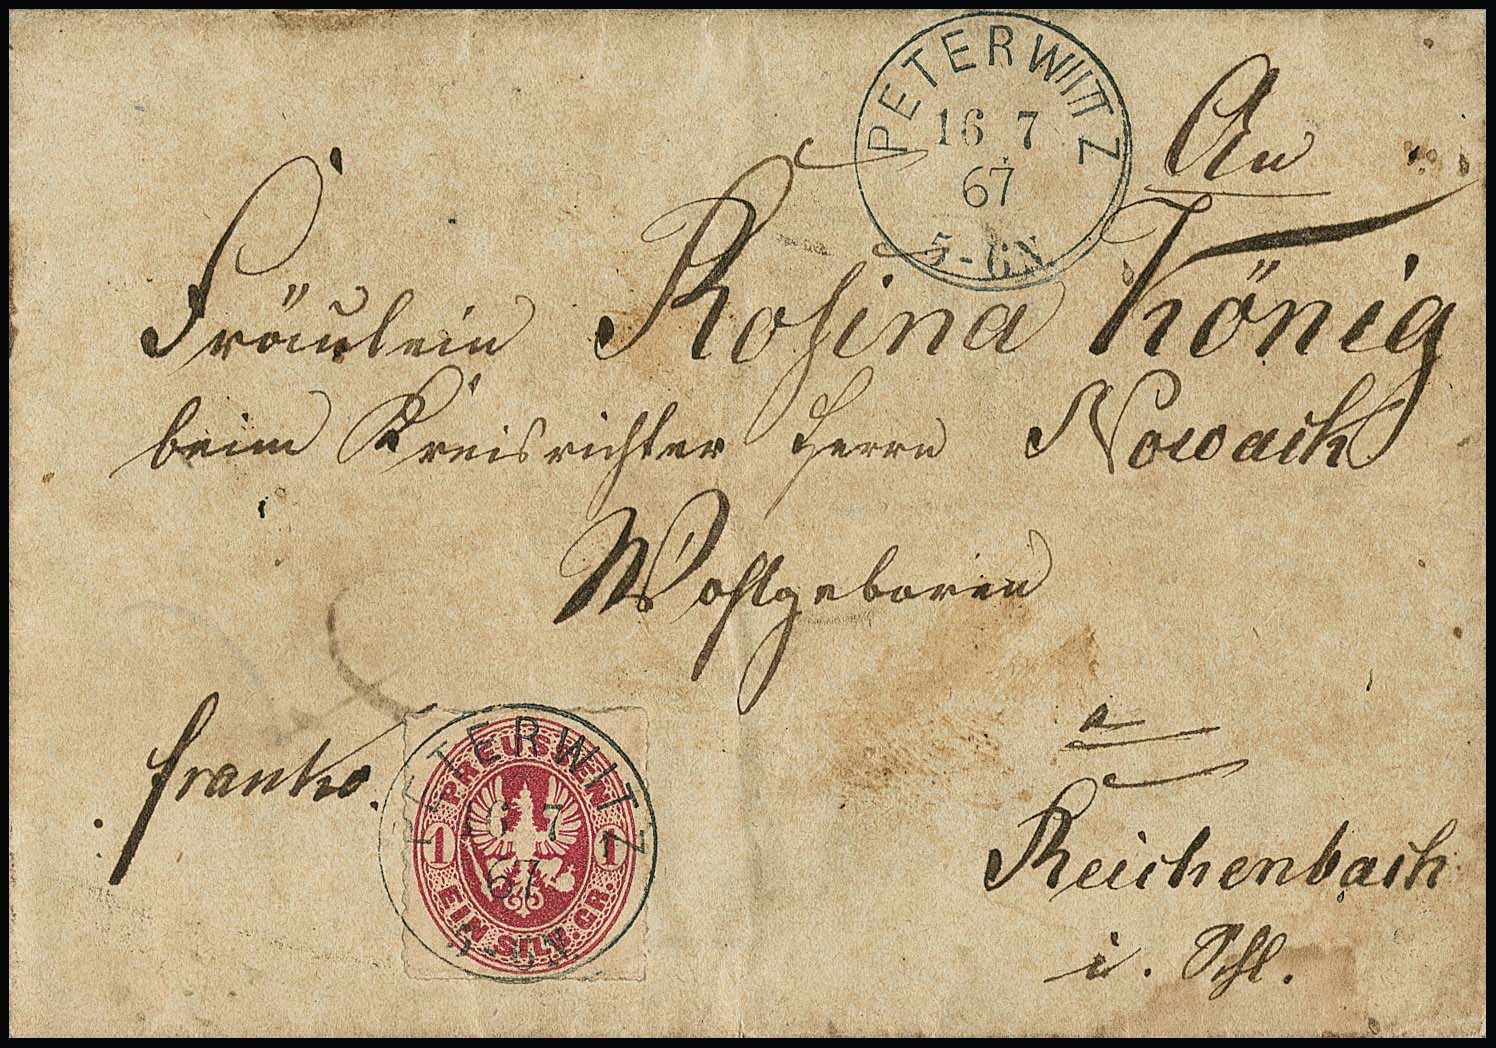 PETERWITZ
16 7
67
5-6N.
An
Fräulein Rosina König
beim Kreisrichter Herrn Nowack
Wohlgeboren
franko.
PREUSSEN
1 1
EIN SILB. GR.
PETERWITZ
16 7
67
5-6N.
Reichenbach
i. Schl.